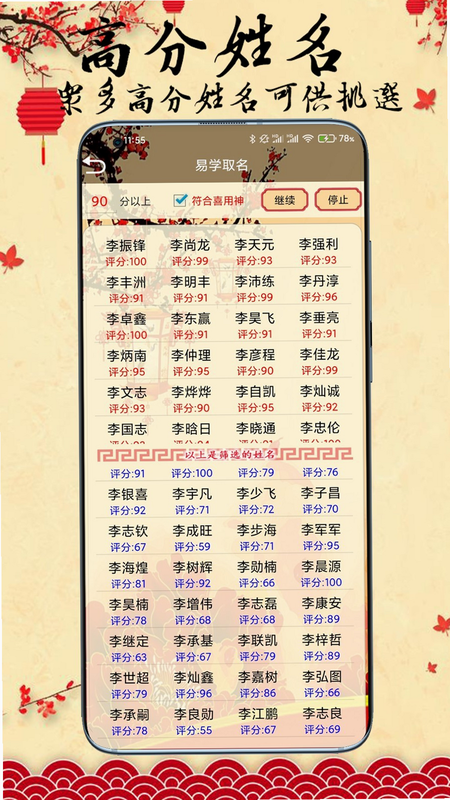 高分姓名
眾多高分姓名可供挑選
11:55 78%
易学取名
90 分以上 符合喜用神 继续 停止
李振锋 李尚龙 李天元 李强利
评分:100 评分:99 评分:93 评分:93
李丰洲 李明丰 李沛练 李丹淳
评分:91 评分:91 评分:99 评分:96
李卓鑫 李东赢 李昊飞 李垂亮
评分:100 评分:91 评分:91 评分:91
李炳南 李仲理 李彦程 李佳龙
评分:95 评分:95 评分:90 评分:99
李文志 李烨烨 李自凯 李灿诚
评分:93 评分:90 评分:95 评分:92
李国志 李晗日 李晓通 李忠伦
以上是筛选的姓名
评分:91 评分:100 评分:79 评分:76
李银喜 李宇凡 李少飞 李子昌
评分:92 评分:71 评分:72 评分:70
李志钦 李成旺 李步海 李军军
评分:67 评分:59 评分:71 评分:95
李海煌 李树辉 李勋楠 李晨源
评分:81 评分:92 评分:66 评分:100
李昊楠 李增伟 李志磊 李康安
评分:78 评分:68 评分:68 评分:89
李继定 李承基 李联凯 李梓哲
评分:63 评分:67 评分:79 评分:89
李世超 李灿鑫 李嘉树 李弘图
评分:79 评分:96 评分:86 评分:66
李承嗣 李良勋 李江鹏 李志良
评分:78 评分:55 评分:67 评分:69